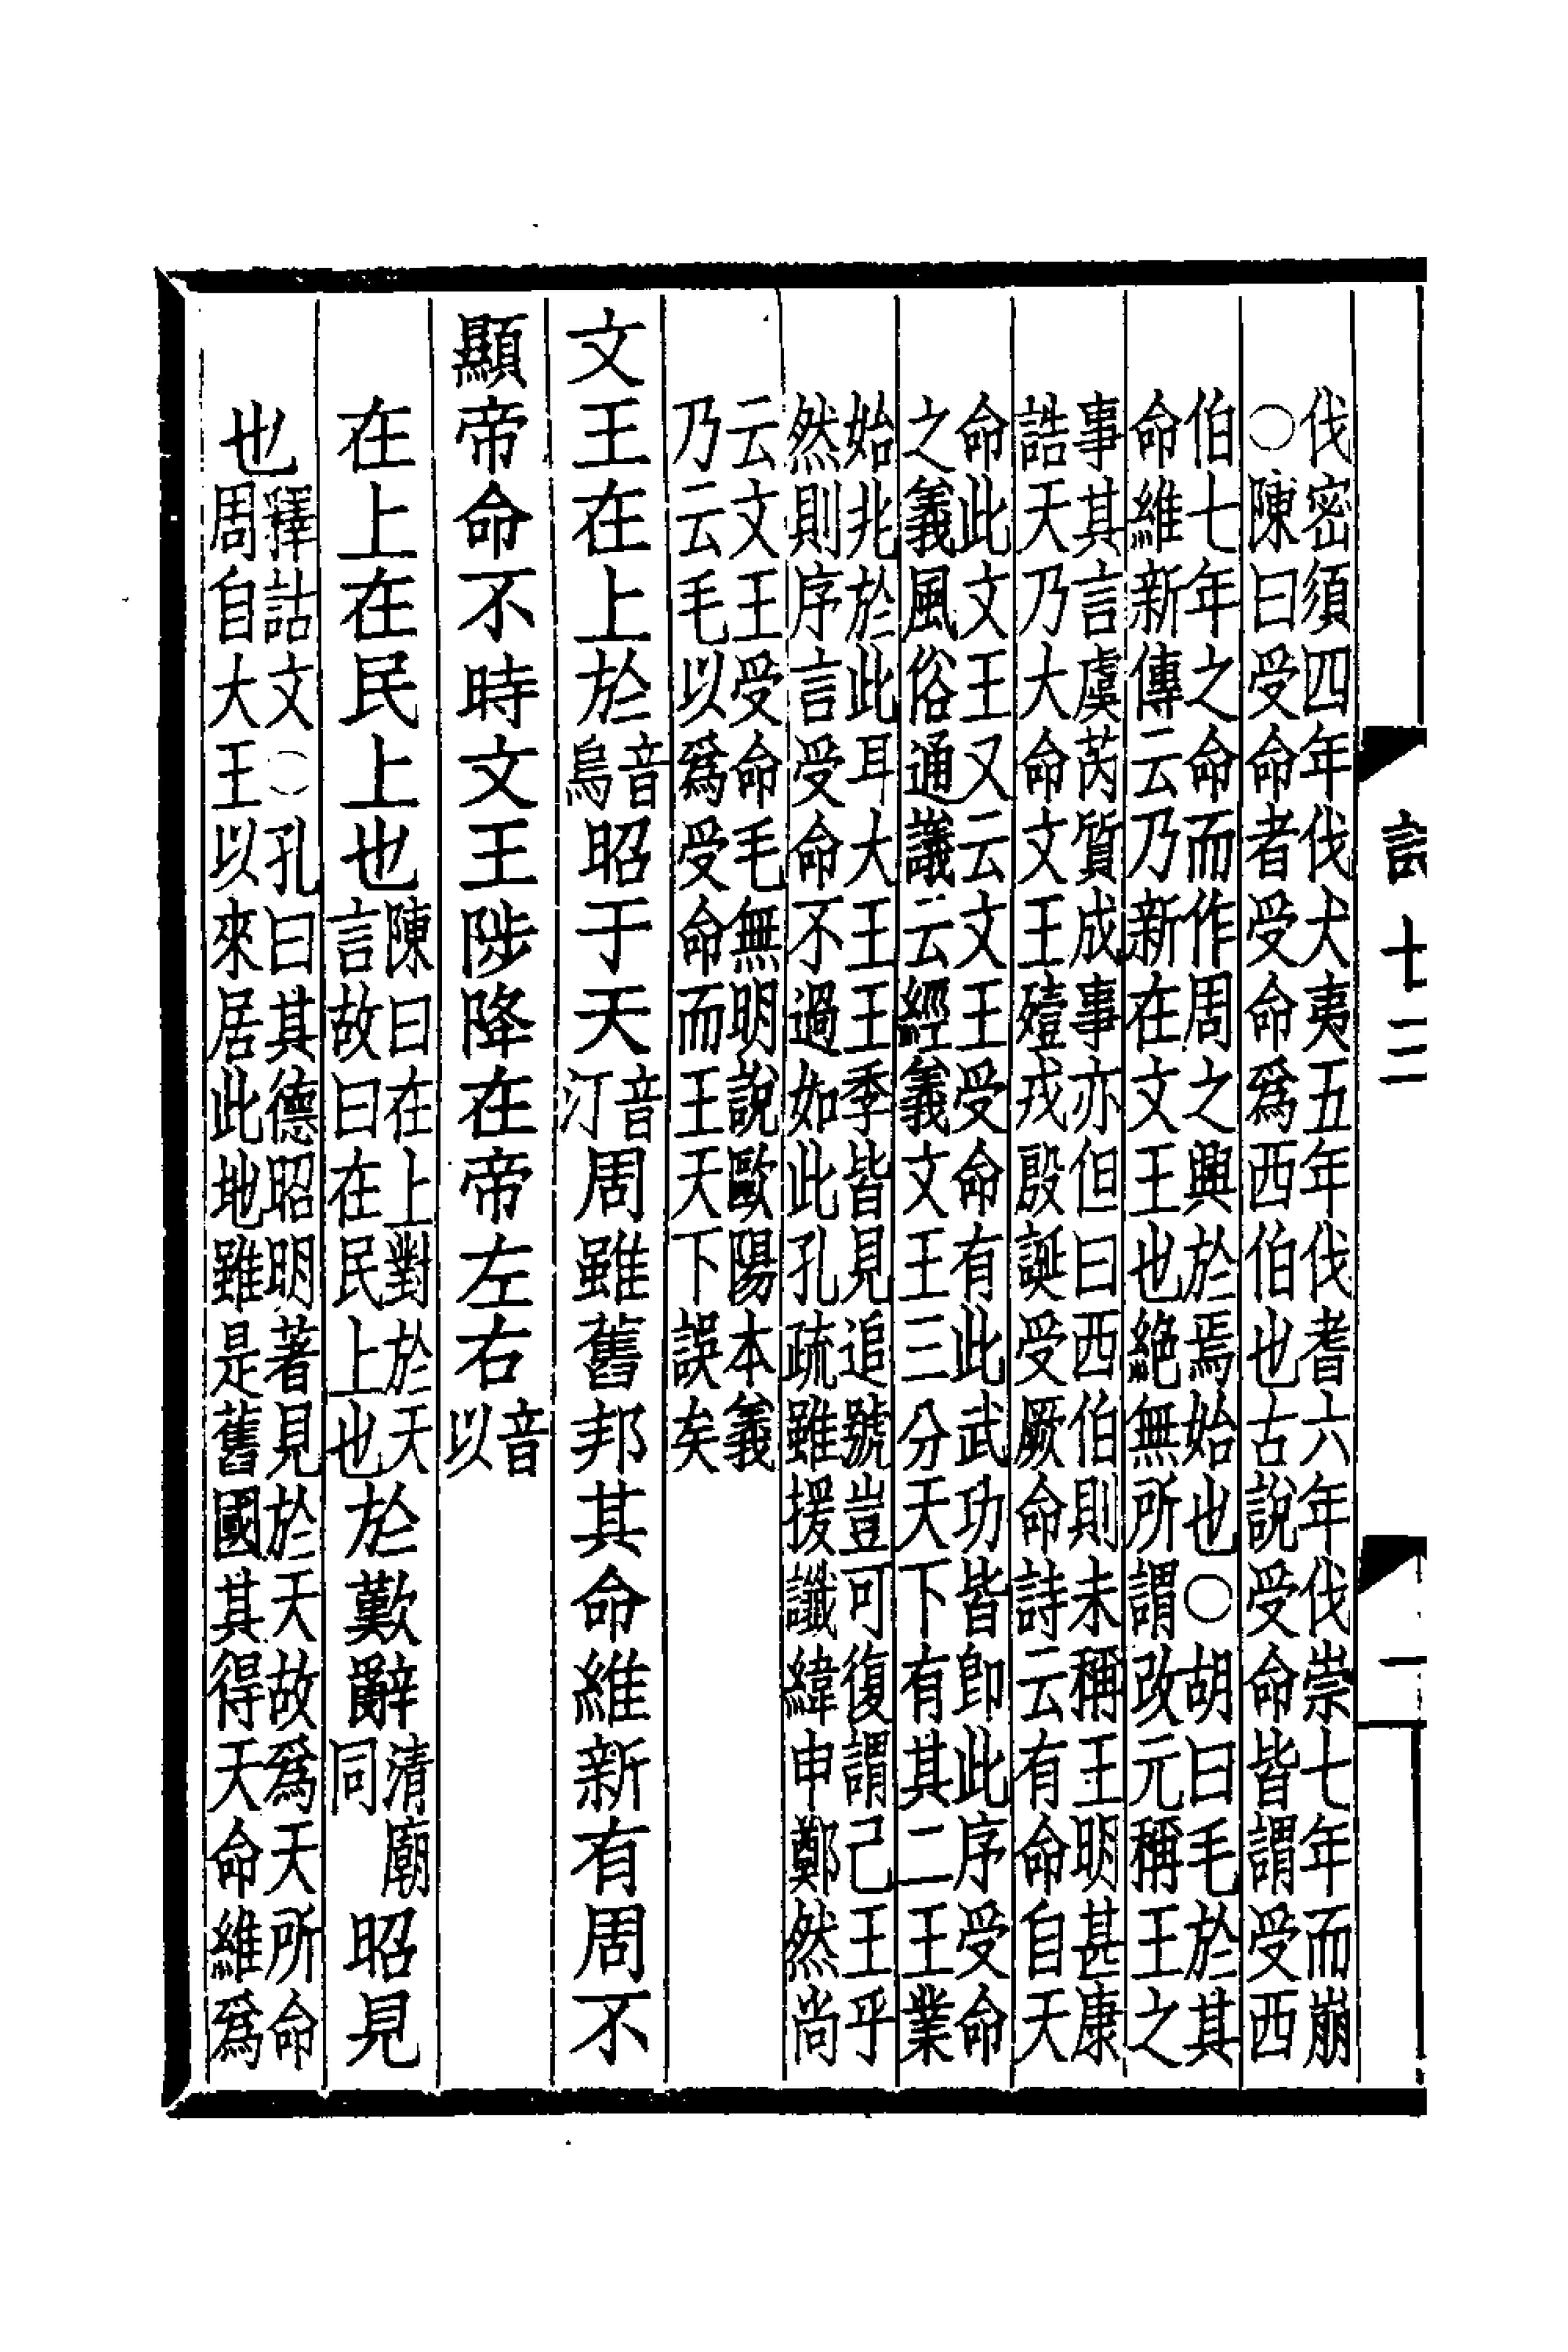 詩 十二 一
伐密須四年伐犬夷五年伐耆六年伐崇七年而崩
○陳曰受命者受命爲西伯也古說受命皆謂受西
伯七年之命而作周之興於焉始也○胡曰毛於其
命維新傳云乃新在文王也絶無所謂改元稱王之
事其言虞芮質成事亦但曰西伯則未稱王明甚康
誥天乃大命文王殪戎殷誕受厥命詩云有命自天
命此文王又云文王受命有此武功皆卽此序受命
之義風俗通議云經義文王三分天下有其二王業
始兆於此耳大王王季皆見追號豈可復謂己王乎
然則序言受命不過如此孔疏雖援讖緯申鄭然尚
云文王受命毛無明說歐陽本義
乃云毛以爲受命而王天下誤矣
文王在上於音烏昭于天音汀周雖舊邦其命維新有周不
顯帝命不時文王陟降在帝左右音以
在上在民上也陳曰在上對於天言故曰在民上也於歎辭清廟同昭見
也釋詁文○孔曰其德昭明著見於天故爲天所命周自大王以來居此地雖是舊國其得天命維爲